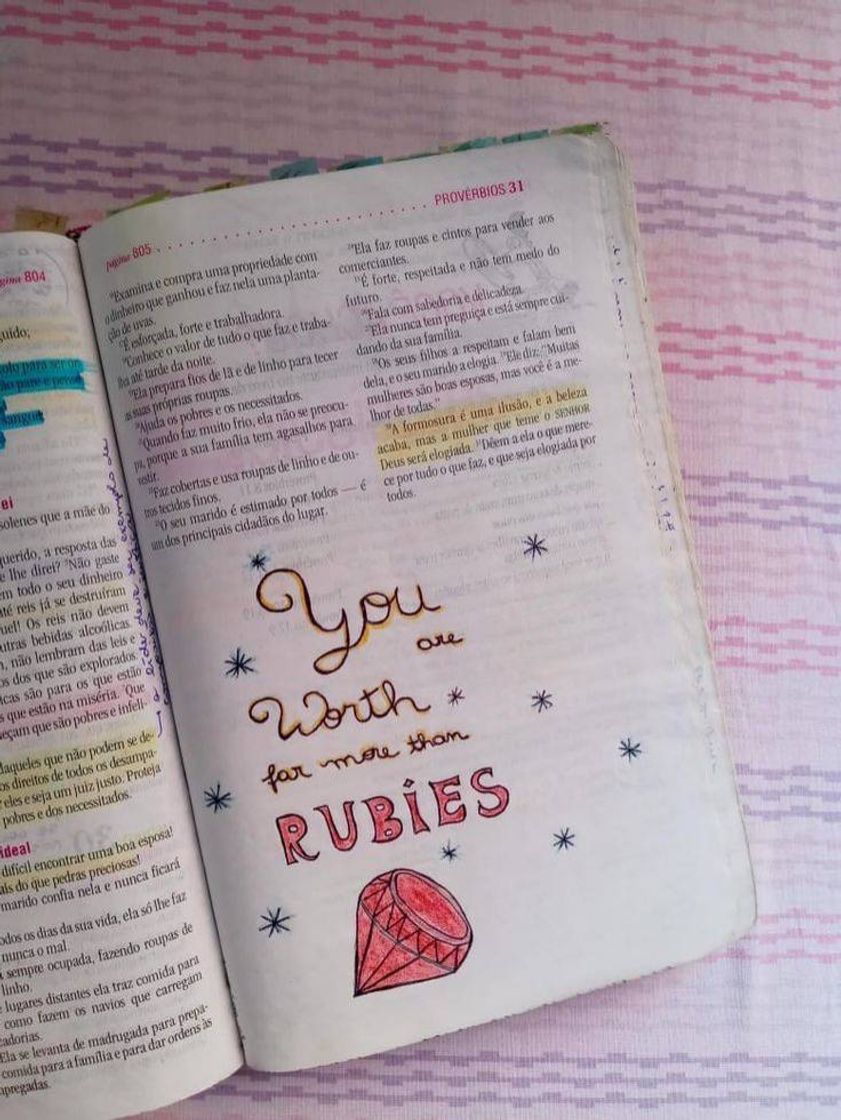 página 804
guido;
sangue
ei
solenes que a mãe do
querido, a resposta das
e lhe direi? Não gaste
em todo o seu dinheiro
até reis já se destruíram
uel! Os reis não devem
outras bebidas alcoólicas.
m, não lembram das leis e
os dos que são explorados.
icas são para os que estão
s que estão na miséria. Que
eçam que são pobres e infeli-
daqueles que não podem se de-
os direitos de todos os desampa-
eles e seja um juiz justo. Proteja
pobres e dos necessitados.
ideal
difícil encontrar uma boa esposa!
ais do que pedras preciosas!
marido confia nela e nunca ficará
odos os dias da sua vida, ela só lhe faz
nunca o mal.
á sempre ocupada, fazendo roupas de
linho.
e lugares distantes ela traz comida para
como fazem os navios que carregam
cadorias.
Ela se levanta de madrugada para prepa-
comida para a família e para dar ordens às
pregadas.
página 805
PROVÉRBIOS 31
Examina e compra uma propriedade com
o dinheiro que ganhou e faz nela uma planta-
ção de uvas.
É esforçada, forte e trabalhadora.
Conhece o valor de tudo o que faz e traba-
lha até tarde da noite.
Ela prepara fios de lã e de linho para tecer
as suas próprias roupas.
Ajuda os pobres e os necessitados.
Quando faz muito frio, ela não se preocu-
pa, porque a sua família tem agasalhos para
vestir.
Faz cobertas e usa roupas de linho e de ou-
tros tecidos finos.
O seu marido é estimado por todos — é
um dos principais cidadãos do lugar.
Ela faz roupas e cintos para vender aos
comerciantes.
É forte, respeitada e não tem medo do
futuro.
Fala com sabedoria e delicadeza.
Ela nunca tem preguiça e está sempre cui-
dando da sua família.
Os seus filhos a respeitam e falam bem
dela, e o seu marido a elogia. Ele diz: "Muitas
mulheres são boas esposas, mas você é a me-
lhor de todas."
A formosura é uma ilusão, e a beleza
acaba, mas a mulher que teme o SENHOR
Deus será elogiada. Dêem a ela o que mere-
ce por tudo o que faz, e que seja elogiada por
todos.
You
are
Worth
far more than
RUBiES